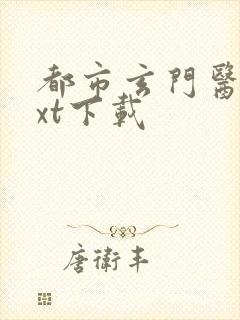 都市玄門醫
xt下載
唐衛丰